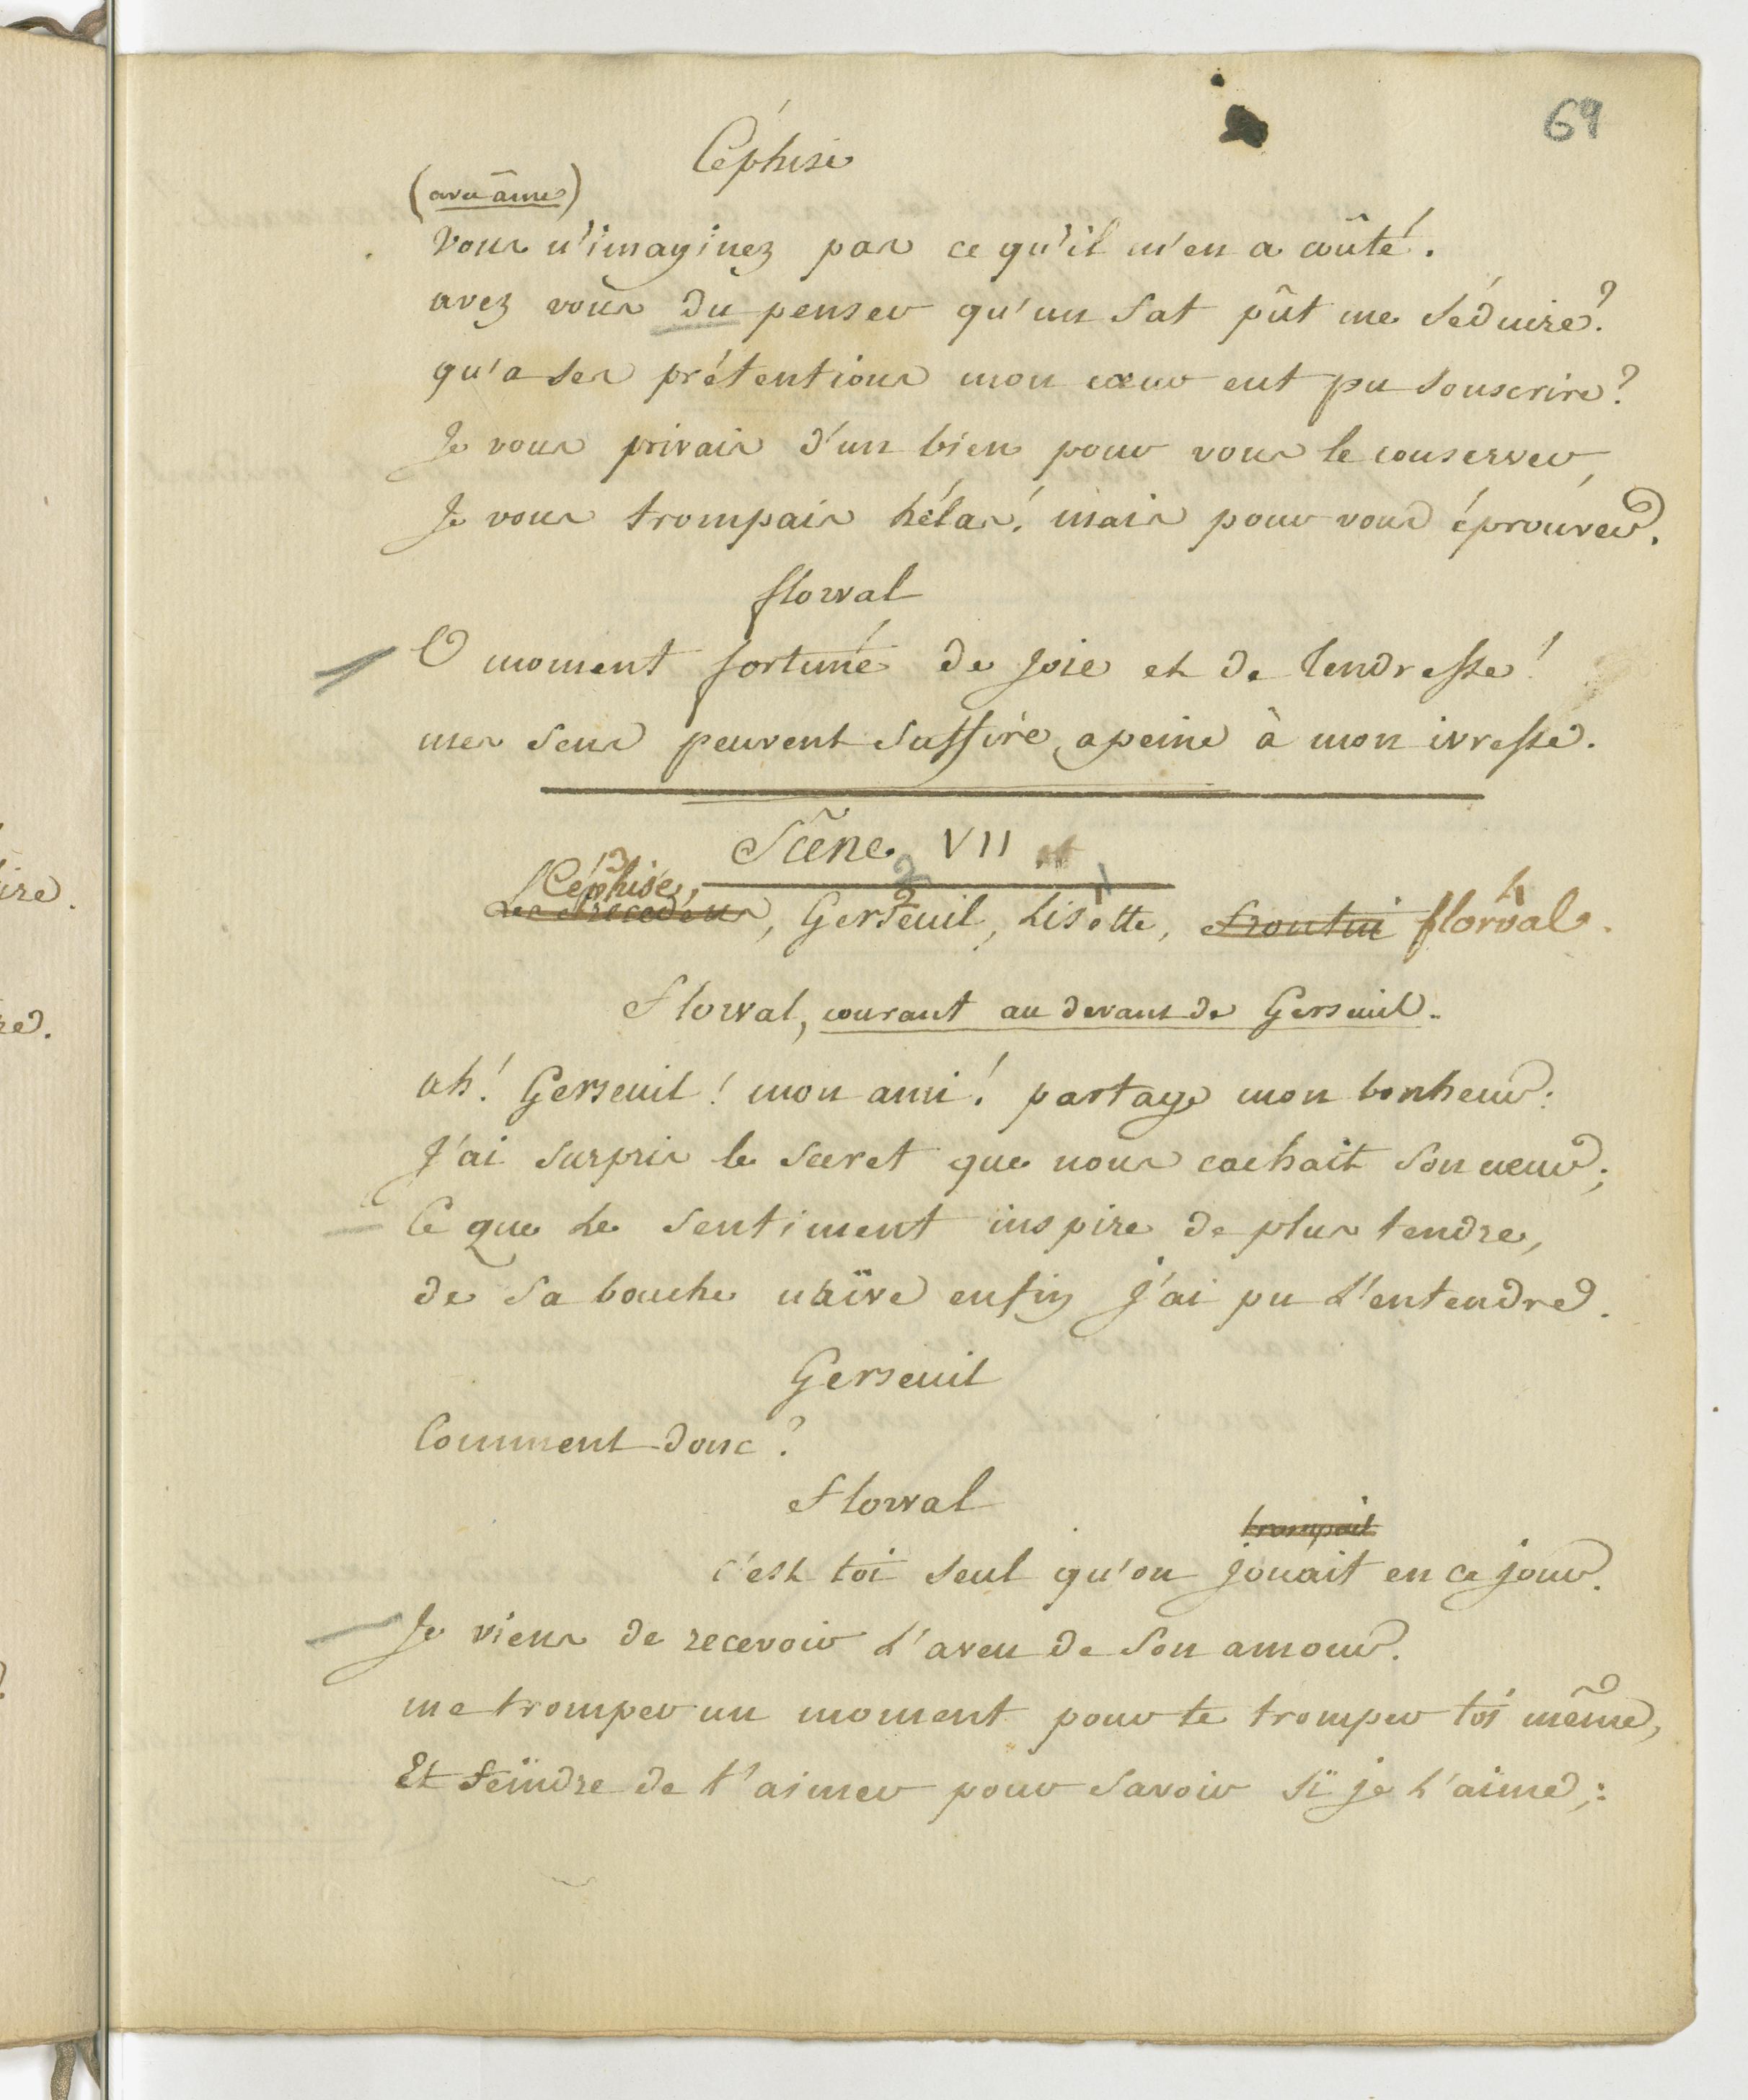 69
Céphise
(avec âme)
Vous n'imaginez pas ce qu'il m'en a coûté.
avez vous du penser qu'un fat pût me séduire?
qu'a ses prétentions mon cœur eut pu souscrire?
Je vous privais d'un bien pour vous le conserver,
Je vous trompais hélas! mais pour vous éprouver.
florval
O moment fortuné de joie et de tendresse!
mes sens peuvent suffire apeine à mon ivresse.
Scène VII
3 2 1 4
Céphise,
Les précédens, Gerseuil, Lisette, frontin florval.
Florval, courant au devant de Gerseuil.
ah! Gerseuil! mon ami! partage mon bonheur:
J'ai surpris le secret que nous cachait son cœur;
Ce que le sentiment inspire de plus tendre,
de sa bouche naïve enfin j'ai pu l'entendre.
Gerseuil
Comment donc?
Florval
trompait
c'est toi seul qu'on jouait en ce jour.
Je viens de recevoir l'aveu de son amour.
me tromper un moment pour te tromper toi même,
Et feindre de t'aimer pour savoir si je l'aime;: